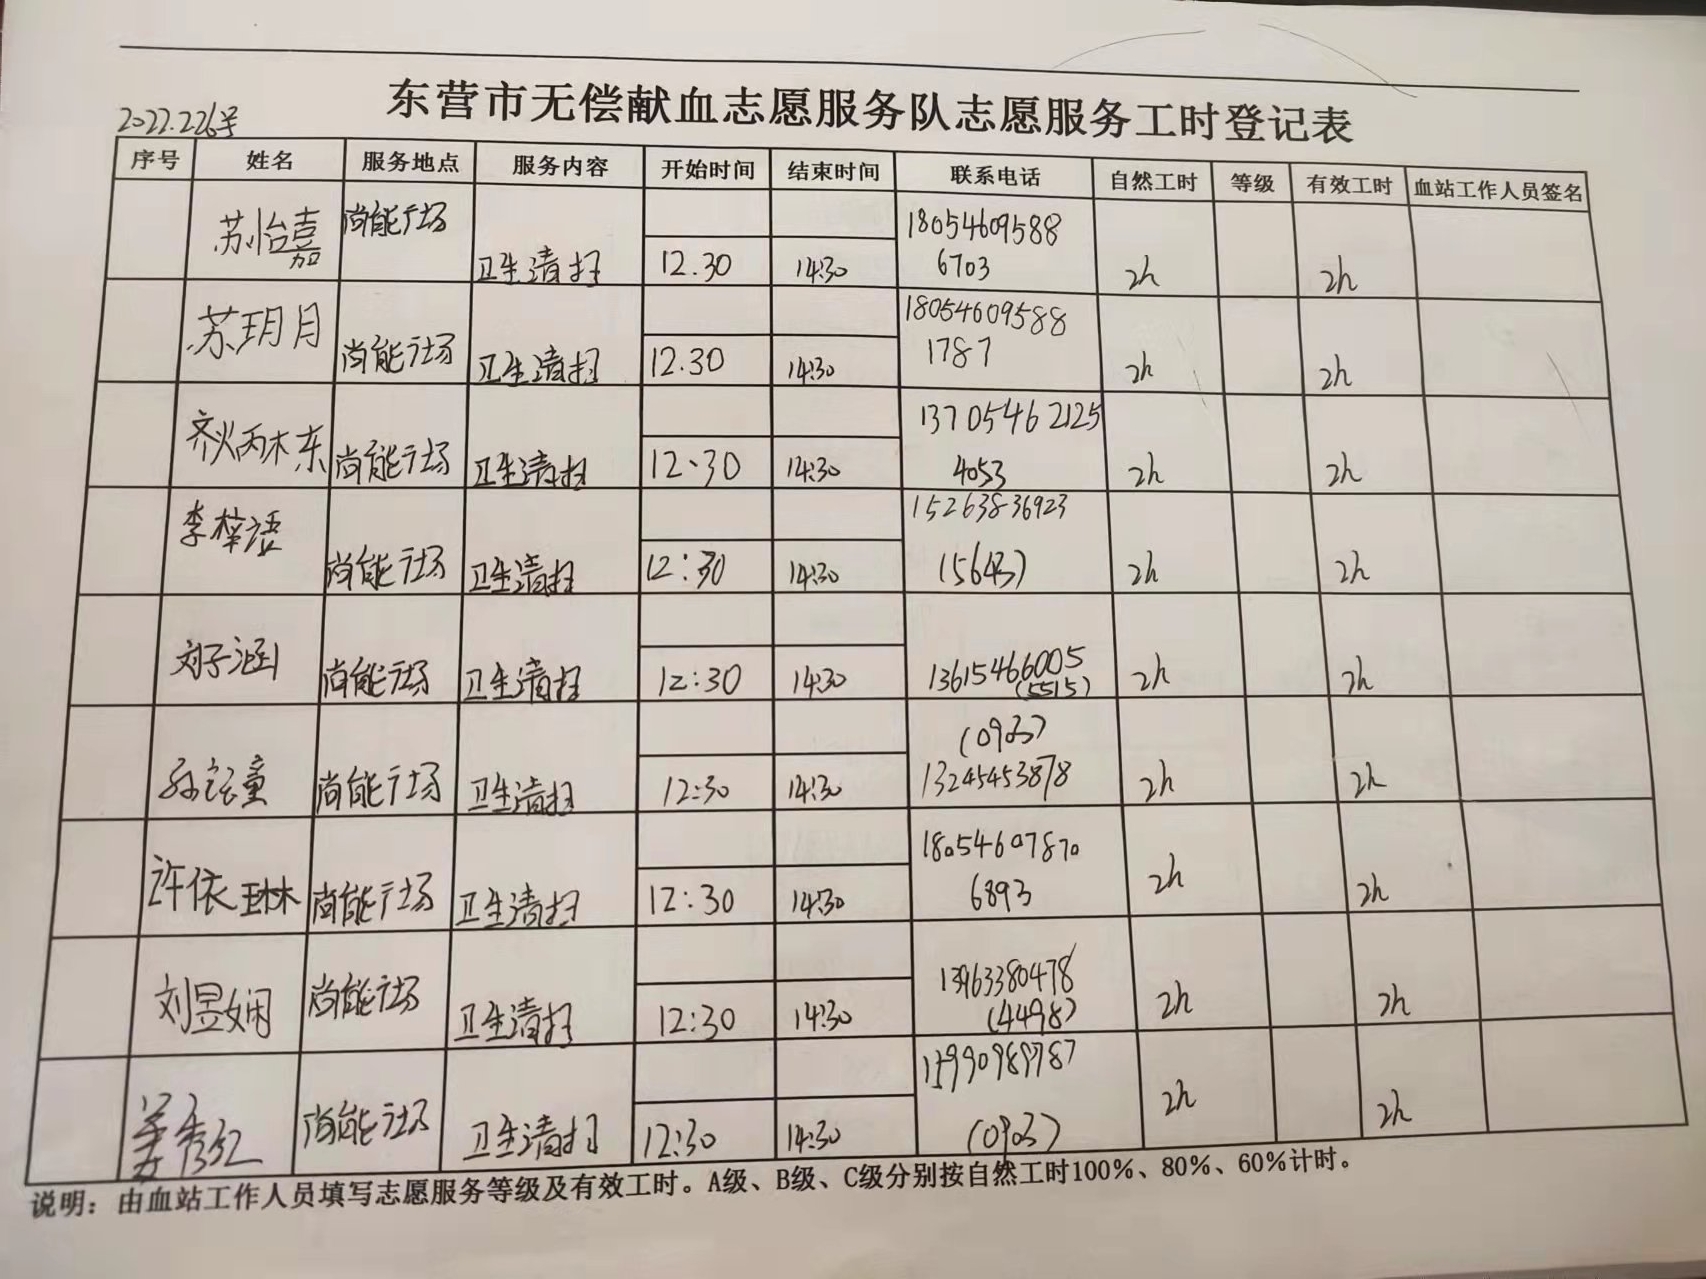 东营市无偿献血志愿服务队志愿服务工时登记表
2022.2.26号
序号 姓名 服务地点 服务内容 开始时间 结束时间 联系电话 自然工时 等级 有效工时 血站工作人员签名
苏怡嘉 尚能广场 卫生清扫 12.30 14:30 18054609588 6703 2h 2h
苏玥月 尚能广场 卫生清扫 12.30 14:30 18054609588 1787 2h 2h
齐炳栋 尚能广场 卫生清扫 12:30 14:30 13705462125 4053 2h 2h
李梓语 尚能广场 卫生清扫 12:30 14:30 15263836923 (5643) 2h 2h
刘子涵 尚能广场 卫生清扫 12:30 14:30 13615466005 (5515) 2h 2h
童 尚能广场 卫生清扫 12:30 14:30 (0903) 13245453878 2h 2h
许依琳 尚能广场 卫生清扫 12:30 14:30 18054607870 6893 2h 2h
刘昱娴 尚能广场 卫生清扫 12:30 14:30 13963380478 (4498) 2h 2h
姜秀红 尚能广场 卫生清扫 12:30 14:30 (0903) 2h 2h
说明：由血站工作人员填写志愿服务等级及有效工时。A级、B级、C级分别按自然工时100%、80%、60%计时。